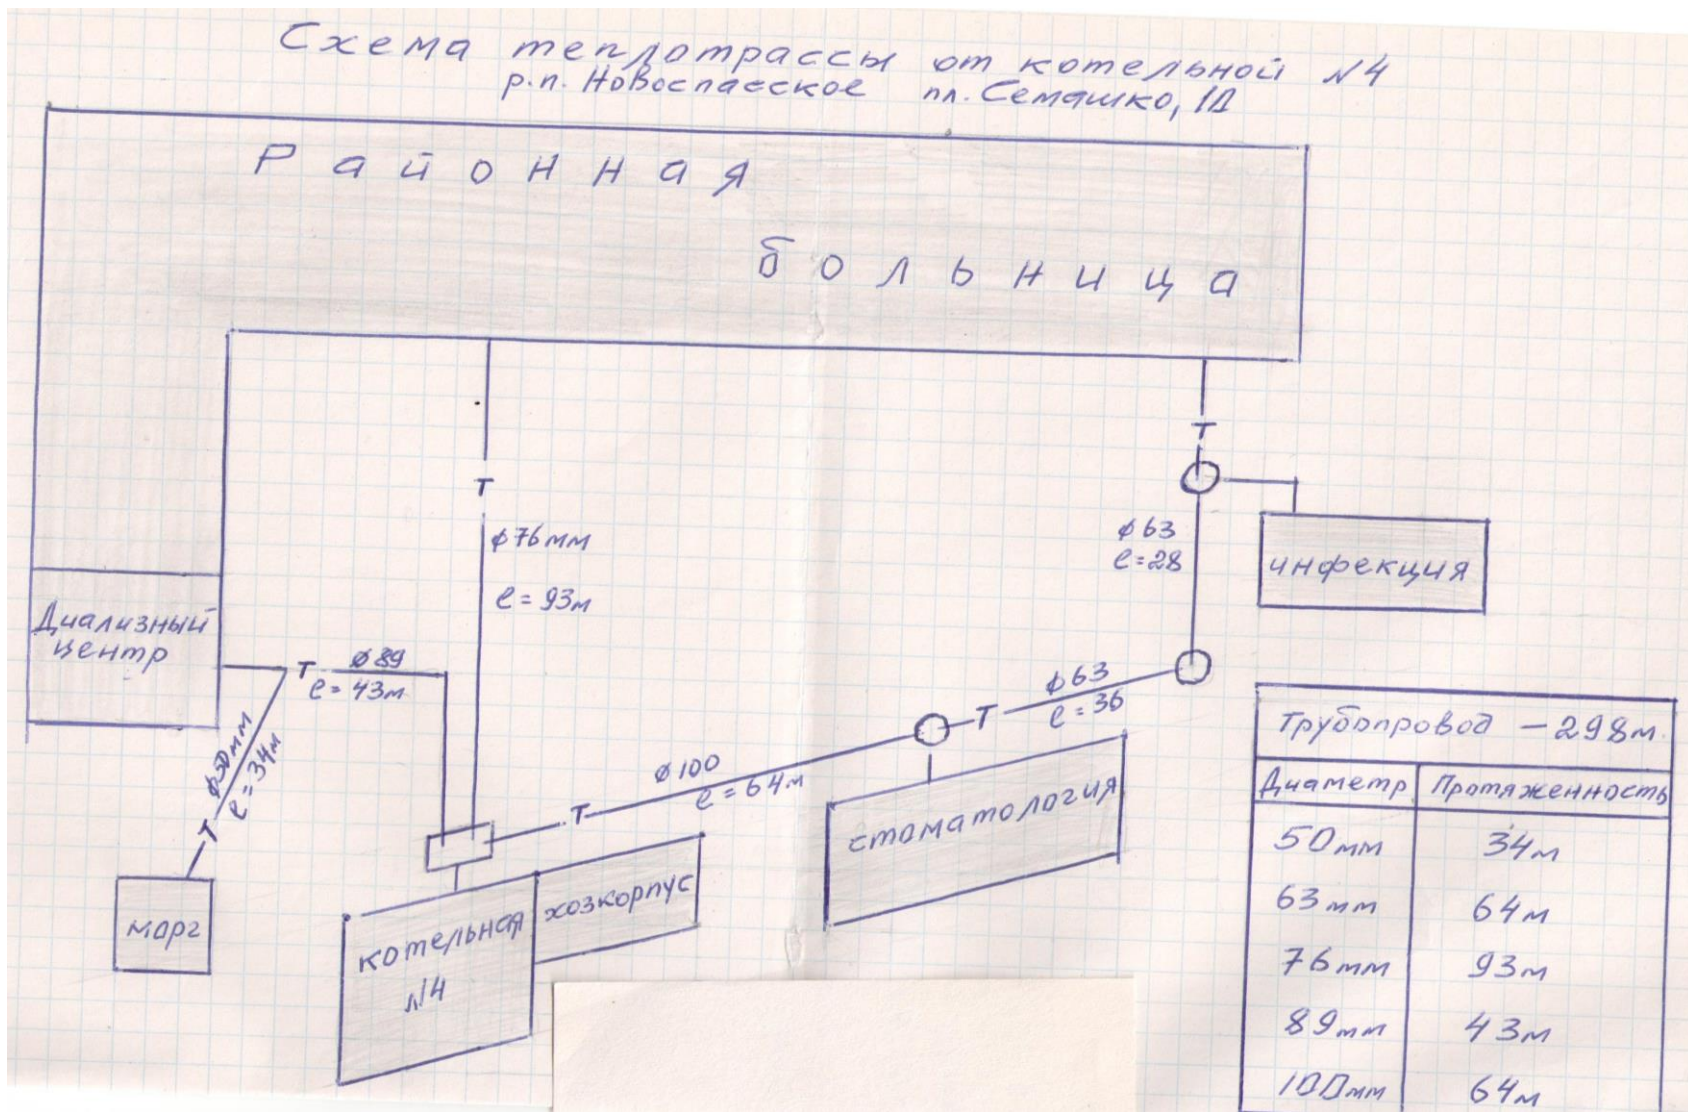 Схема теплотрассы от котельной №4
р.п. Новоспасское пл. Семашко, 1Д
Районная
больница
Т
Т
ф76мм
ф63
l=28
инфекция
l=93м
Диализный
центр
Т ф89
l=43м
ф63
l=36
Т
ф50мм
l=34м
Т
ф100
l=64м
Т
стоматология
морг
котельная
№4
хозкорпус
Трубопровод - 298м.
Диаметр Протяженность
50мм 34м
63мм 64м
76мм 93м
89мм 43м
100мм 64м